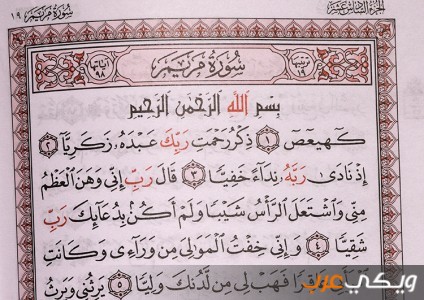 سُورَةُ مَرْيَم ١٩
الجُزءُ السَّادِسَ عَشَرَ
آيَاتُهَا ٩٨ سُورَةُ مَرْيَمَ تَرْتِيبُهَا ١٩
بِسْمِ اللَّهِ الرَّحْمَٰنِ الرَّحِيمِ
كٓهيعٓصٓ ١ ذِكْرُ رَحْمَتِ رَبِّكَ عَبْدَهُۥ زَكَرِيَّآ ٢
إِذْ نَادَىٰ رَبَّهُۥ نِدَآءً خَفِيًّا ٣ قَالَ رَبِّ إِنِّي وَهَنَ ٱلْعَظْمُ
مِنِّي وَٱشْتَعَلَ ٱلرَّأْسُ شَيْبًا وَلَمْ أَكُنۢ بِدُعَآئِكَ رَبِّ
شَقِيًّا ٤ وَإِنِّي خِفْتُ ٱلْمَوَٰلِيَ مِن وَرَآءِي وَكَانَتِ
فَهَبْ لِي مِن لَّدُنكَ وَلِيًّا ٥ يَرِثُنِي وَيَرِثُ
ويكي عرب